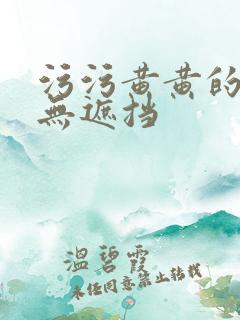 污污黄黄的
無遮挡
温碧霞
未经同意禁止转载